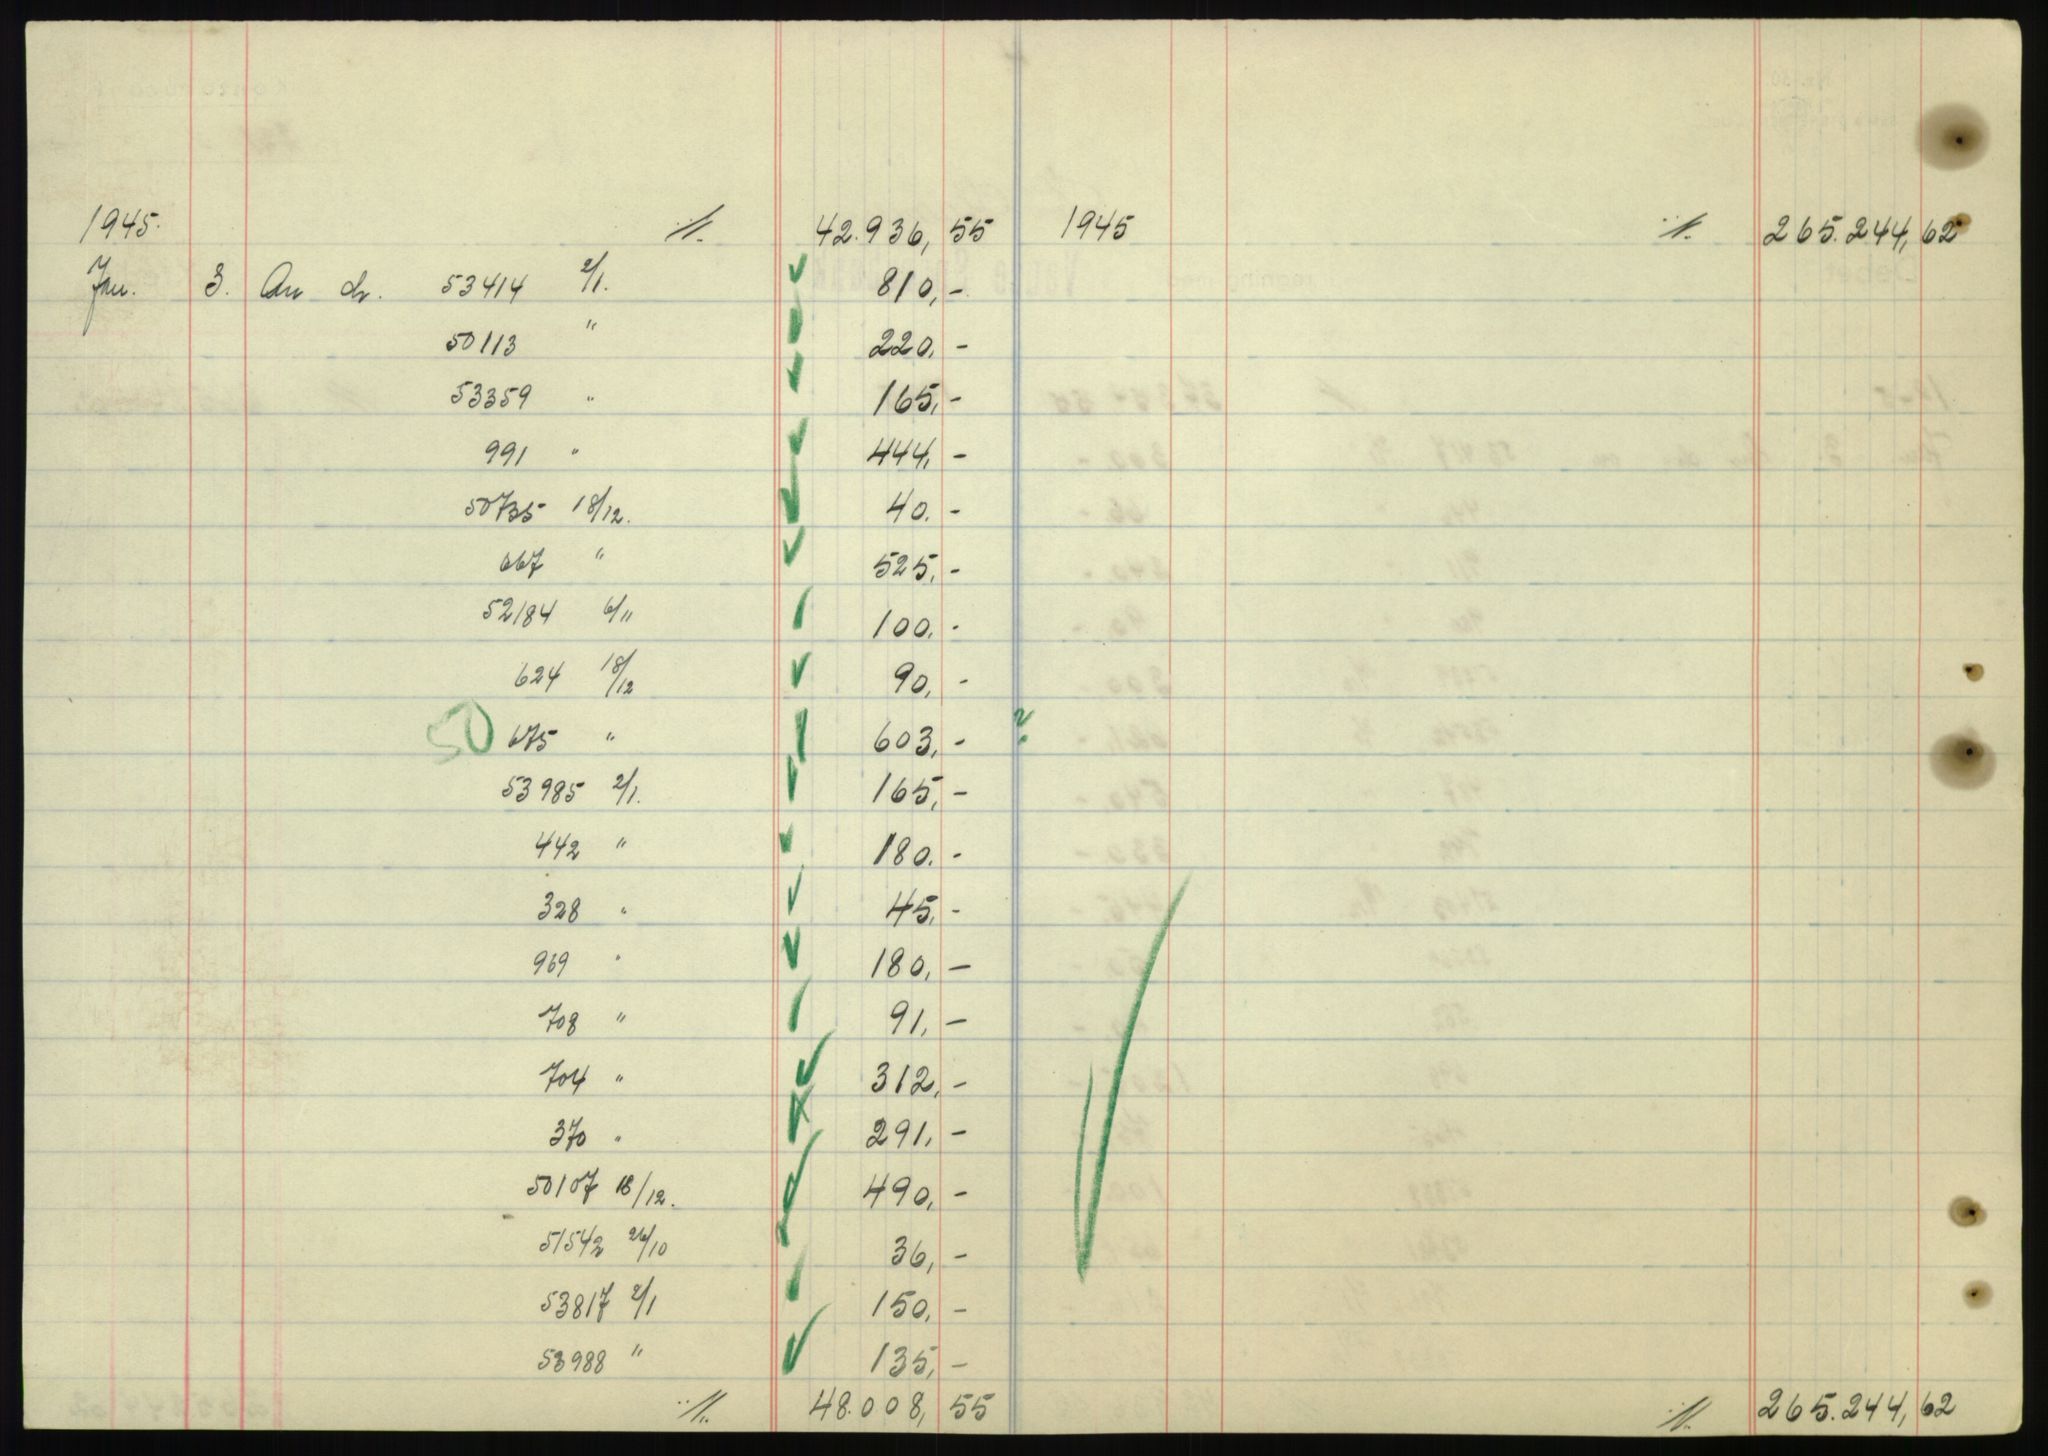 1945. ·//. 42.936, 55 1945 ·//. 265.244, 62
Jan. 3. An ch. 53414 2/1. 810, -
50113 " 220. -
53359 " 165, -
991 " 444, -
50735 18/12. 40. -
667 " 525, -
52184 6/11 100. -
624 18/12 90, -
50 675 " 603, - ?
53985 2/1. 165, -
442 " 180. -
328 " 45, -
969 " 180, -
708 " 91, -
704 " 312, -
370 " 291, -
50107 18/12. 490, -
51542 26/10 36, -
53817 2/1 150, -
53988 " 135, -
·//. 48.008, 55 ·//. 265.244, 62